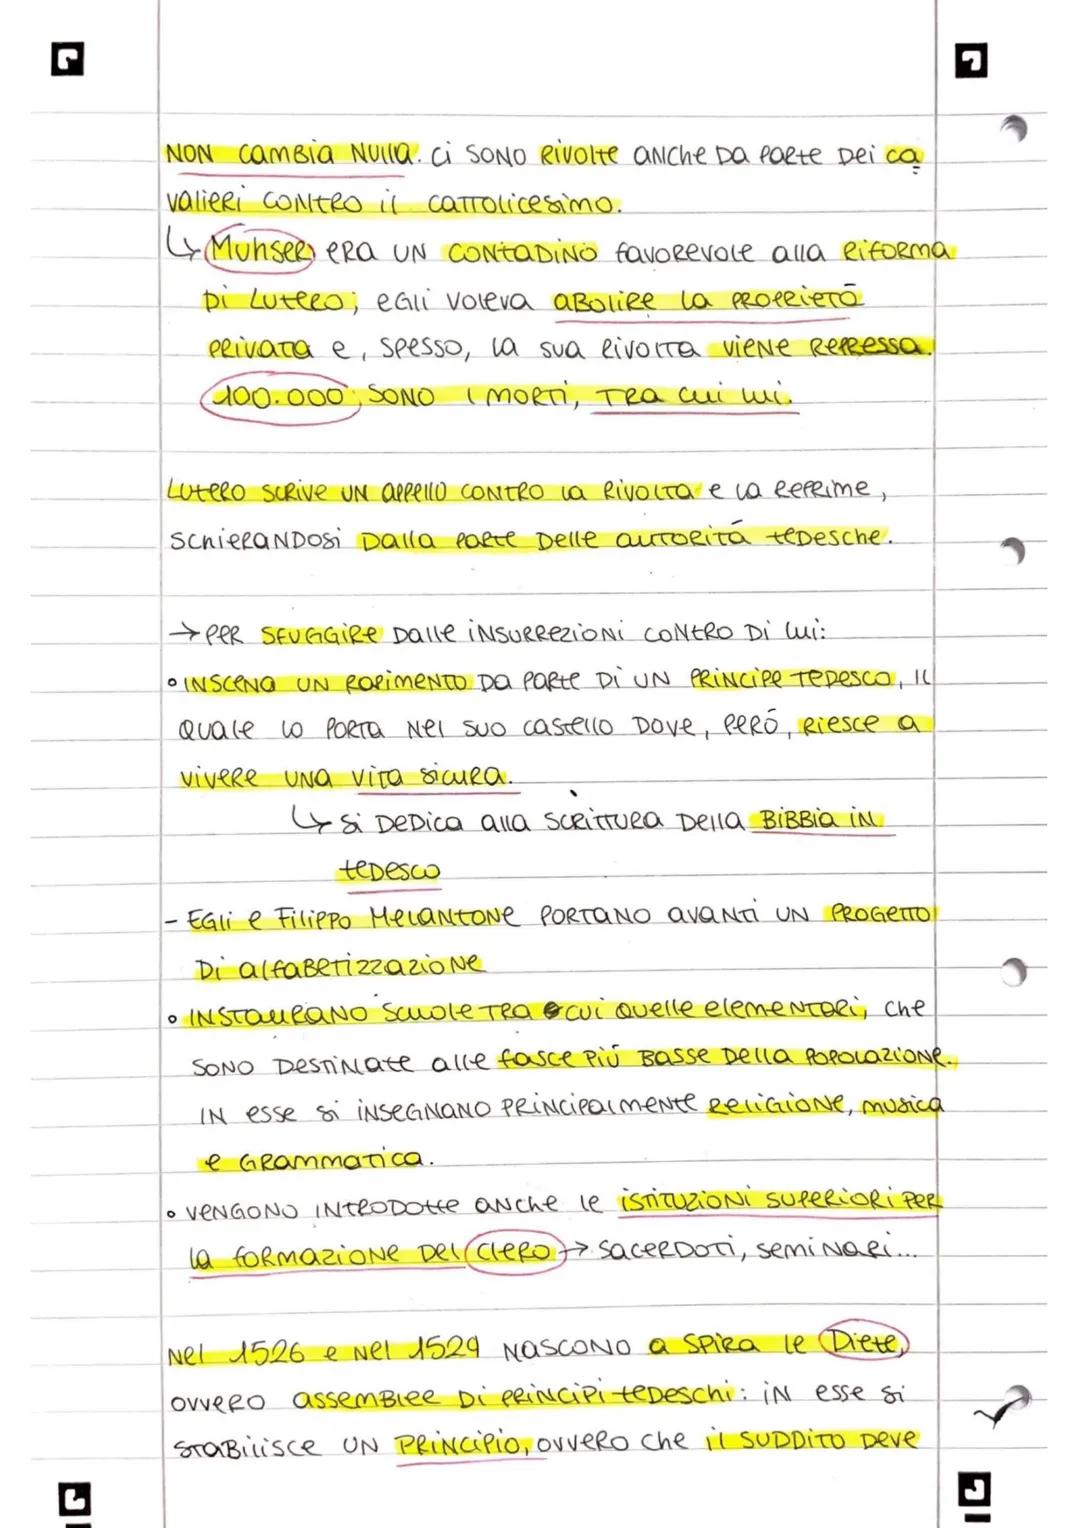 NON CAMBIA NULLA. Ci SONO RIVOLTE ANCHE DA PARTE DEI CA
VALIERI CONTRO IL CATTOLICESIMO.
↳ MUHSER ERA UN CONTADINO FAVOREVOLE ALLA RIFORMA
DI LUTERO; EGLI VOLEVA ABOLIRE LA PROPRIETÁ
PRIVATA E, SPESSO, LA SUA RIVOLTA VIENE REPRESSA.
100.000 SONO I MORTI, TRA CUI LUI.
LUTERO SCRIVE UN APPELLO CONTRO LA RIVOLTA E LA REPRIME,
SCHIERANDOSI DALLA PARTE DELLE AUTORITÁ TEDESCHE.
→ PER SFUGGIRE DALLE INSURREZIONI CONTRO DI LUI:
• INSCENA UN RAPIMENTO DA PARTE DI UN PRINCIPE TEDESCO, IL
QUALE LO PORTA NEL SUO CASTELLO DOVE, PERÓ, RIESCE A
VIVERE UNA VITA SICURA.
↳ SI DEDICA ALLA SCRITTURA DELLA BIBBIA IN
TEDESCO
- EGLI E FILIPPO MELANTONE PORTANO AVANTI UN PROGETTO
DI ALFABETIZZAZIONE
• INSTAURANO SCUOLE TRA CUI QUELLE ELEMENTARI, CHE
SONO DESTINATE ALLE FASCE PIÚ BASSE DELLA POPOLAZIONE.
IN ESSE SI INSEGNANO PRINCIPALMENTE RELIGIONE, MUSICA
E GRAMMATICA.
• VENGONO INTRODOTTE ANCHE LE ISTITUZIONI SUPERIORI PER
LA FORMAZIONE DEL CLERO → SACERDOTI, SEMINARI...
NEL 1526 E NEL 1529 NASCONO A SPIRA LE DIETE,
OVVERO ASSEMBLEE DI PRINCIPI TEDESCHI: IN ESSE SI
STABILISCE UN PRINCIPIO, OVVERO CHE IL SUDDITO DEVE